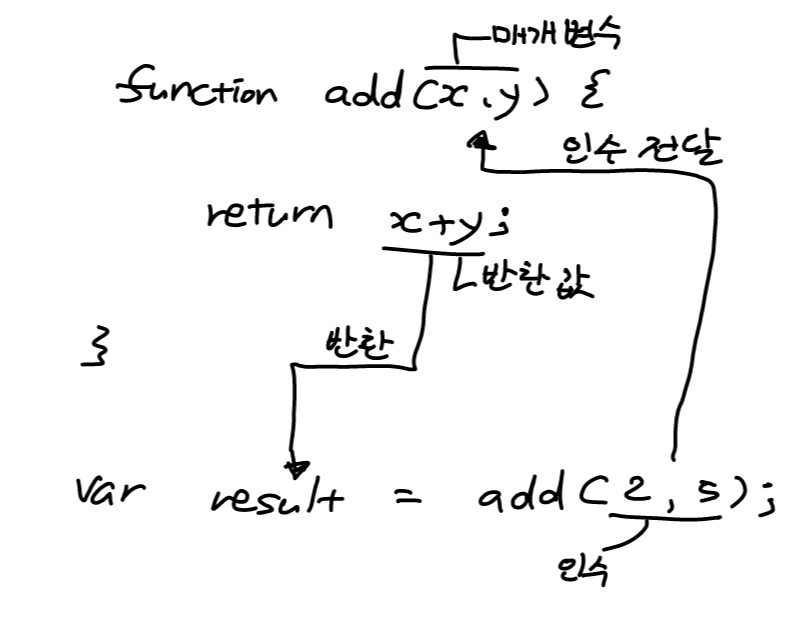 매개변수
function add(x,y) {
인수 전달
return x+y;
반환값
반환
}
var result = add(2,5);
인수